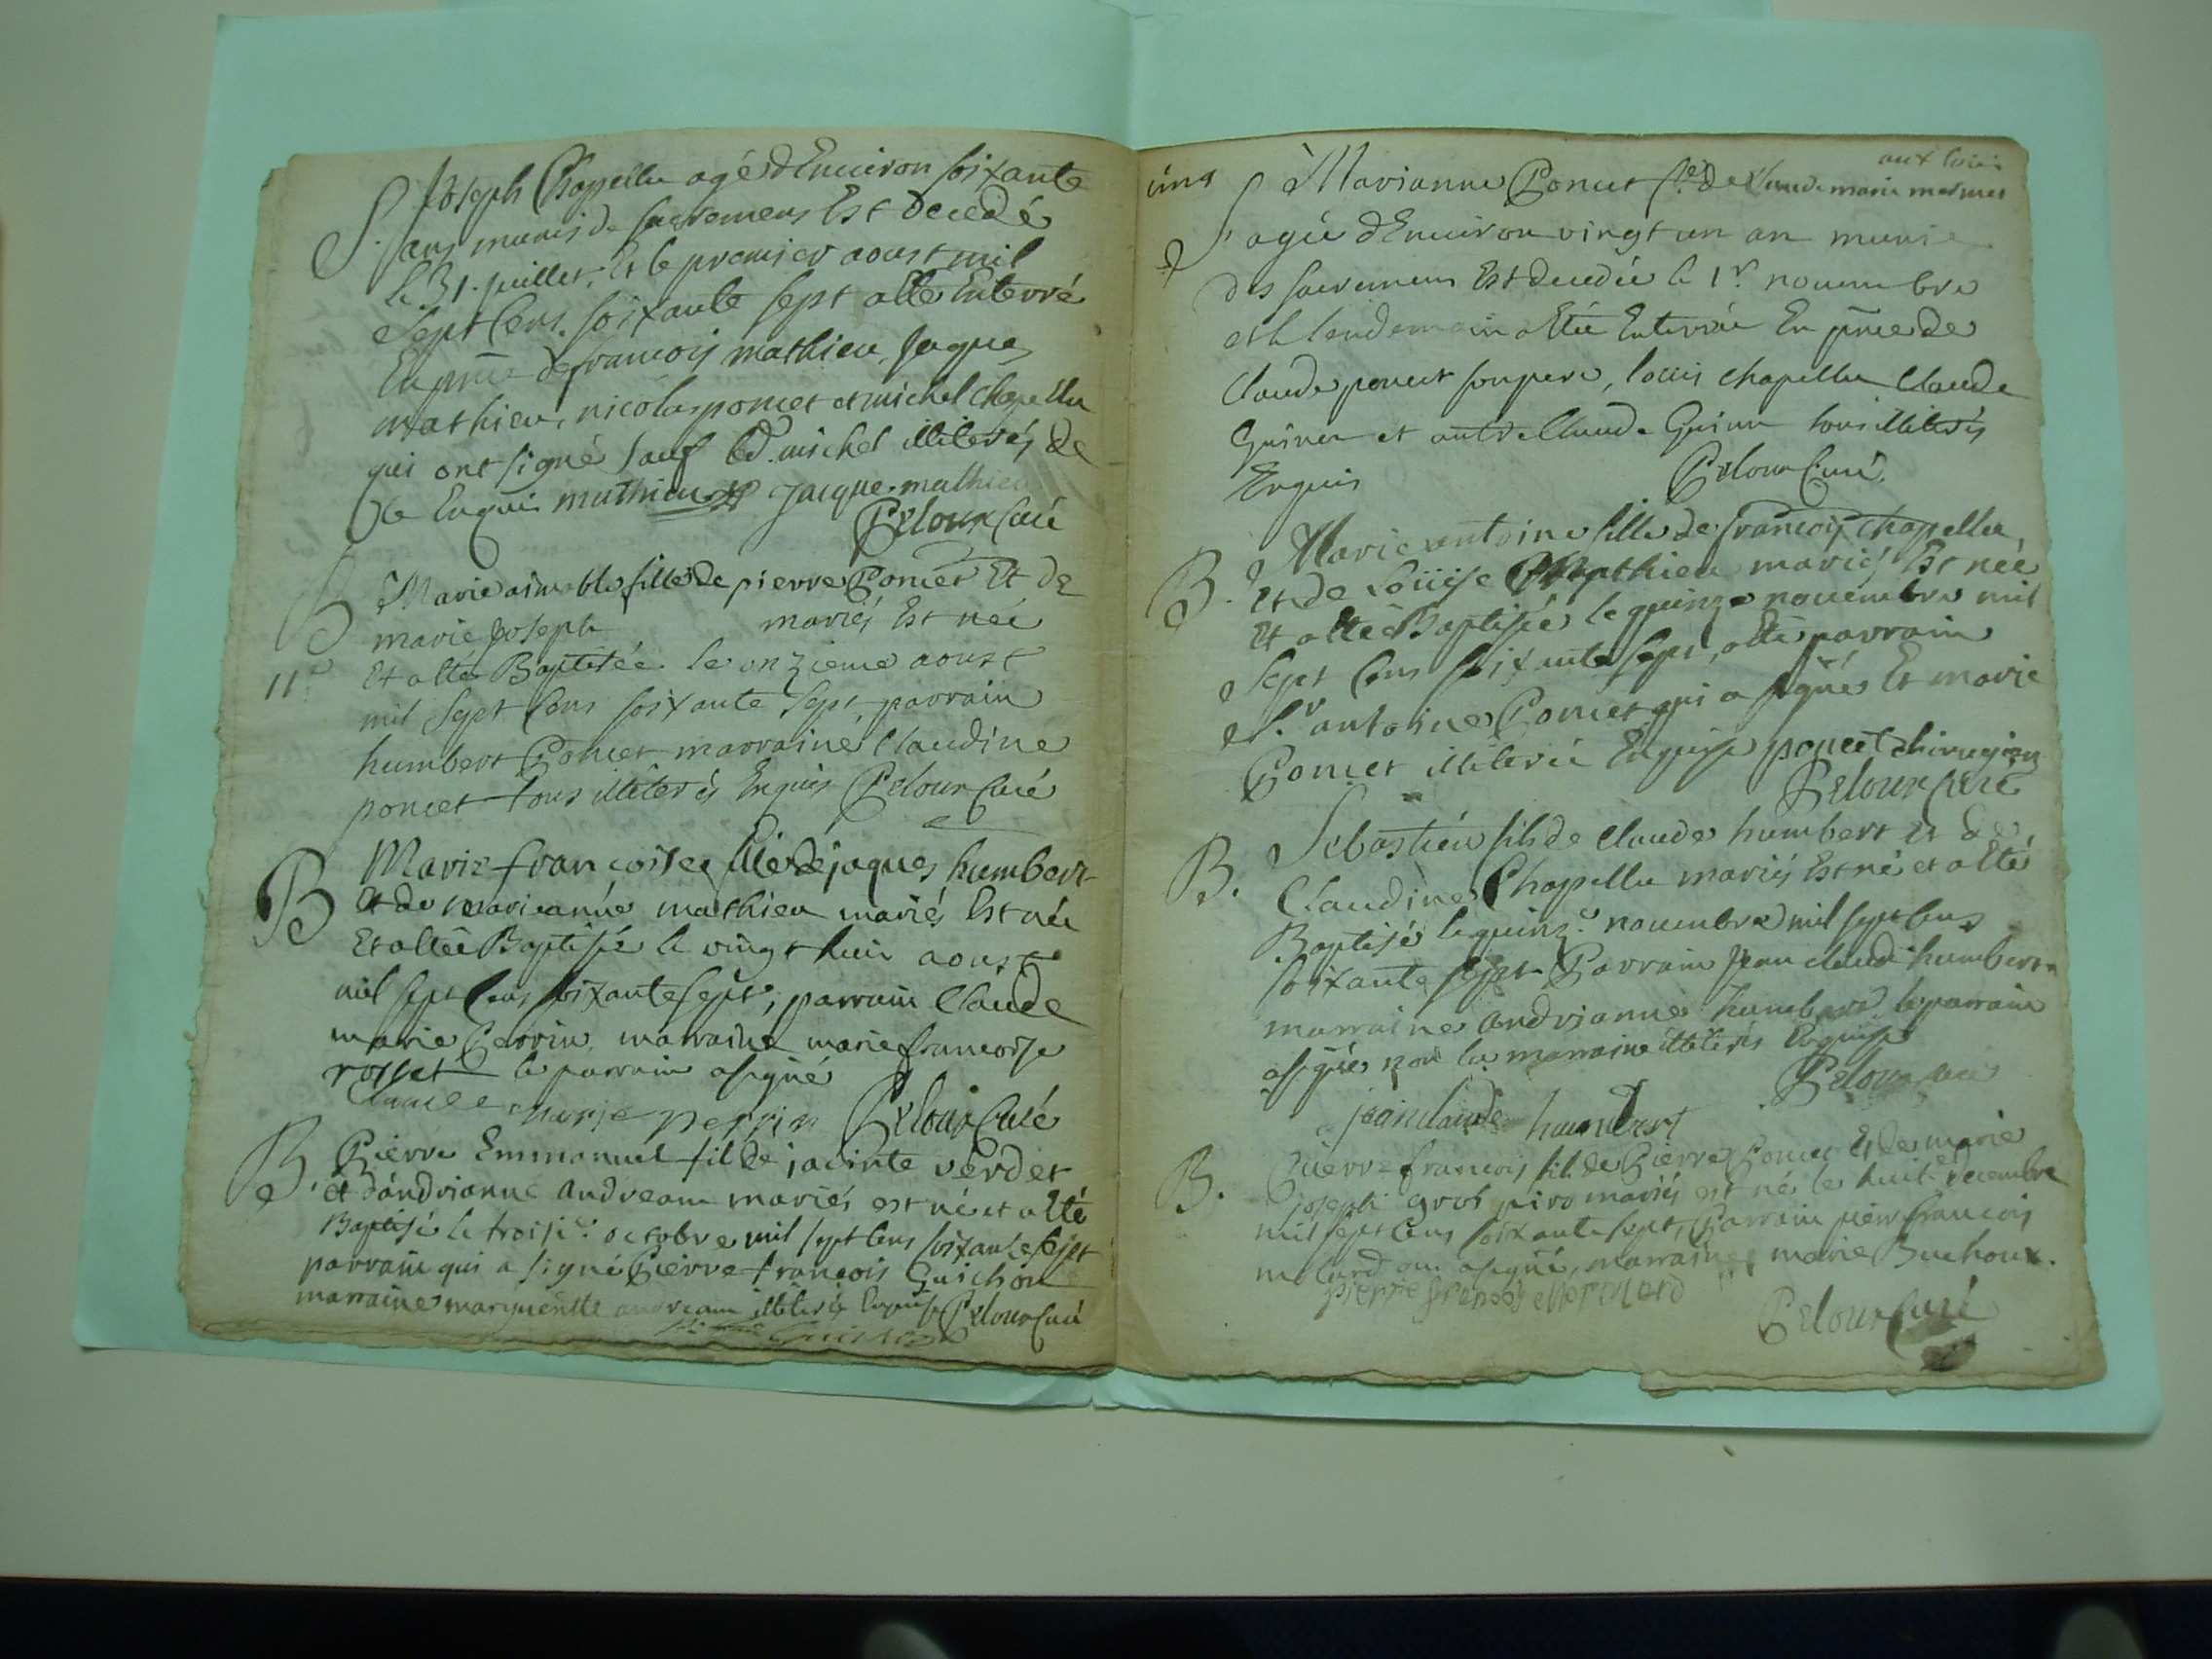 S. Joseph Chapellu agé d'Environ soixante
ans munis de sacremens Est decedé
le 31. juillet, Et le premier aoust mil
sept Cens soixante sept a été Enterré
En pñce de francois mathieu, jaques
mathieu, nicolas poncet et michel Chapellu
qui ont signé sauf led. michel illiterés de
Ce Enquis mathieu jacque mathieu
Pelour Curé
B Marie aimable fille de pierre Poncet Et de
marie joseph mariés Est née
11e Et a été Baptisée le onzieme aoust
mil sept Cens soixante sept, parrain
humbert Poncet marraine Claudine
poncet tous illiterés Enquis Pelour Curé
B Marie francoise fille de jaques humbert
Et de marieanne mathieu mariés Est née
Et a été Baptisée le vingt huit aoust
mil sept Cens soixante sept, parrain Claude
marie Perrin marraine marie francoise
rosset le parrain a signé
Claude marie perrin Pelour Curé
B. Pierre Emmanuel fil de jacinte verdet
et d'andrianne andreane mariés est né et a été
Baptisé le troisie octobre mil sept Cens soixante sept
parrain qui a signé Pierre francois Guichon
marraine marguerite andreane illiterée Enquise Pelour Curé
aux louis
S Marianne Poncet fe de Claude marie mermet
agée d'Environ vingt un an munie
des sacremens Est decedée le 1r. novembre
et le lendemain a Eté Enterrée En pñce de
Claude poncet son pere, louis chapellu Claude
Guinen et autre Claude Guinen tous illiterés
Enquis Pelour Curé.
B. Marie antoine fille de francois chapellu,
Et de Loüise Mathieu mariés Est née
Et a été Baptisée le quinze novembre mil
sept Cens soixante sept, a été parrain
Sr. antoine Poncet qui a signé Et marie
Poncet illiterée Enquise poncet chirurgien
Pelour Curé
B. Sebastien fils de Claude humbert Et de
Claudine Chapellu mariés Est né et a été
Baptisé le quinze novembre mil sept Cens
soixante sept Parrain jean claude humbert
marraine andrianne humbert le parrain
a signé non la marraine illiterés Enquise
jean claude humbert Pelour Curé
B. Pierre francois fil. de Pierre Poncet Et de marie
joseph gros piro mariés est né le huite decembre
mil sept Cens soixante sept, Parrain pierre francois
molard qui a signé, marraine marie Buchoux.
Pelour Curé